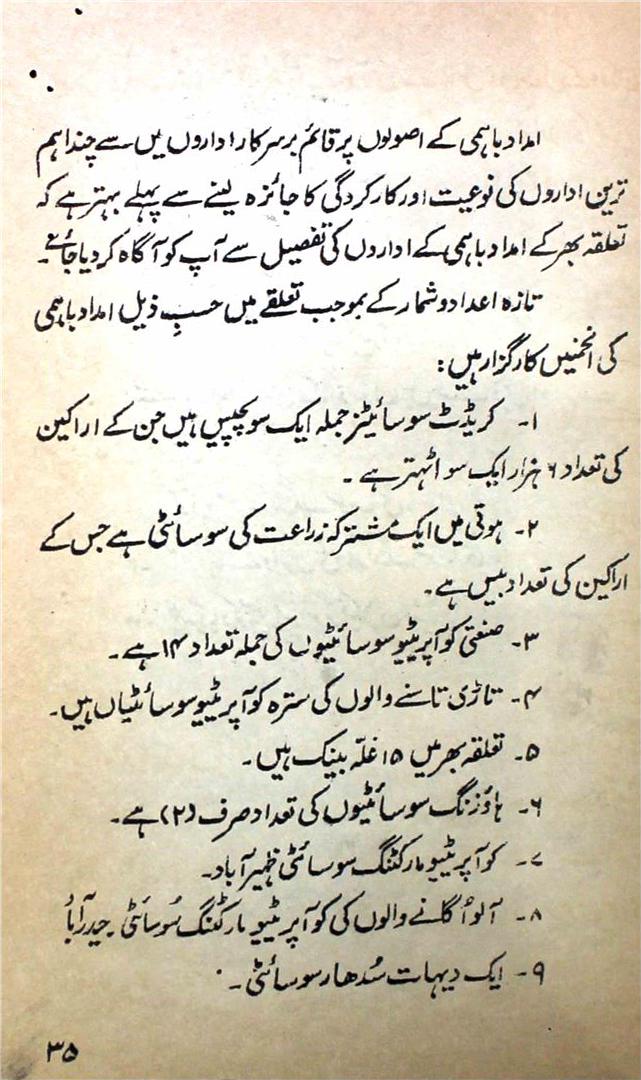 امداد باہمی کے اصولوں پر قائم برسرکار اداروں میں سے چند اہم
ترین اداروں کی نوعیت اور کارکردگی کا جائزہ لینے سے پہلے بہتر ہے کہ
تعلقہ بھر کے امداد باہمی کے اداروں کی تفصیل سے آپ کو آگاہ کر دیا جائے۔
تازہ اعداد و شمار کے بموجب تعلقے میں حسبِ ذیل امداد باہمی
کی انجمنیں کارگزار ہیں:
۱۔ کریڈٹ سوسائیٹز جملہ ایک سو پچیس ہیں جن کے اراکین
کی تعداد ۶ ہزار ایک سو اٹھتر ہے ۔
۲۔ ہوتی میں ایک مشترکہ زراعت کی سوسائٹی ہے جس کے
اراکین کی تعداد بیس ہے۔
۳۔ صنعتی کوآپریٹیو سوسائیٹیوں کی جملہ تعداد ۱۴ ہے ۔
۴۔ تاڑی تاسنے والوں کی سترہ کوآپریٹیو سوسائٹیاں ہیں۔
۵۔ تعلقہ بھر میں ۱۵ غلّہ بینک ہیں ۔
۶۔ ہاؤزنگ سوسائٹیوں کی تعداد صرف (۲) ہے ۔
۷۔ کوآپریٹیو مارکٹنگ سوسائٹی ظہیر آباد۔
۸۔ آلو اُگانے والوں کی کوآپریٹیو مارکٹنگ سُوسائٹی ۔ حیدرآباد
۹۔ ایک دیہات سُدھار سوسائٹی ۔
۳۵